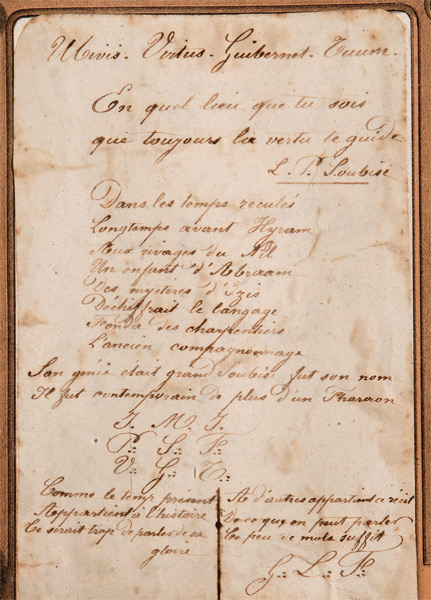 Ubivis. Virtus. Guibernet. Tuum.
En quel lieu que tu sois
que toujours la vertu te guide
L. P. Soubise
Dans les temps reculés
Longtemps avant Hyram
Aux rivages du Nil
Un enfant d'Abraam
Des mysteres d'Izis
Déchiffrait le langage
Fonda des charpentiers
L'ancien compagnonnage
Son genie etait grand Soubise fut son nom
Il fut contemporain de plus d'un Pharaon
J. M. J.
P∴ S∴ F∴
V∴ G∴ T∴
Comme le temp present
Appartient à l'histoire
Ce serait trop de parler de sa
gloire
A d'autres appartient ce récit
De ce qu'on peut parler
Ce peu de mots suffit
G∴ L∴ F∴